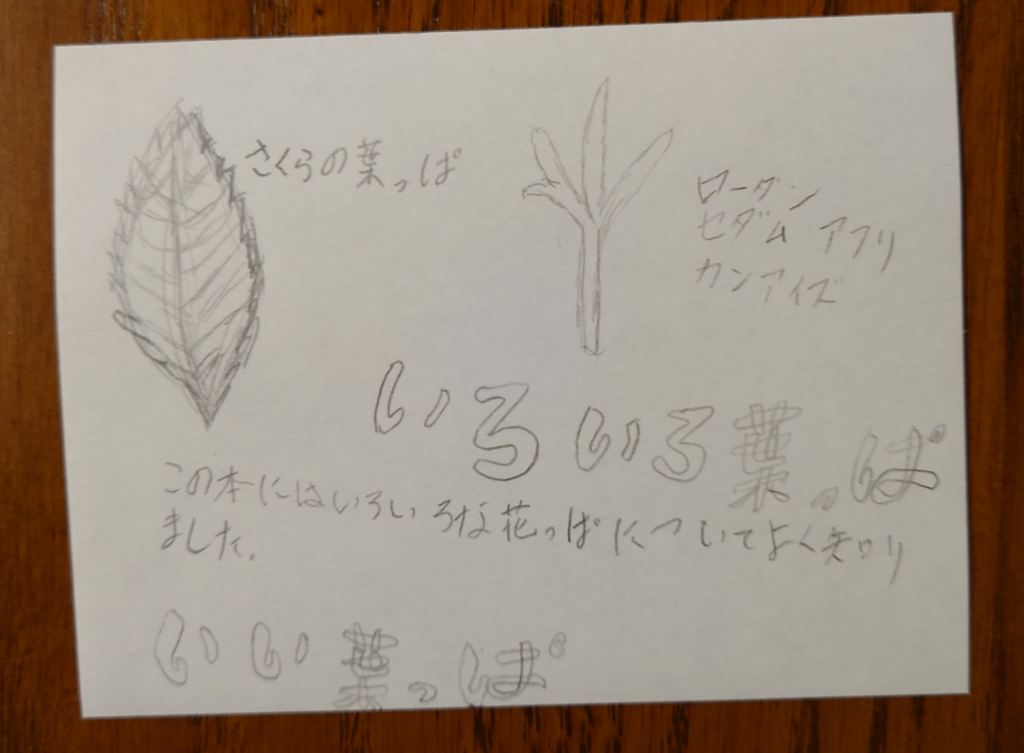 さくらの葉っぱ
ローダン
セダム アフリ
カンアイズ
いろいろ葉っぱ
この本にはいろいろな花っぱについてよく知り
ました。
いい葉っぱ